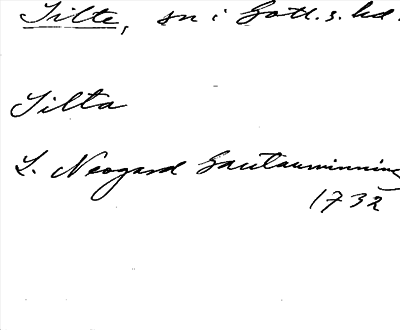 Tilte, sn i Gotl. s. hd.
Tilta
L. Neogard Gautauminning
1732